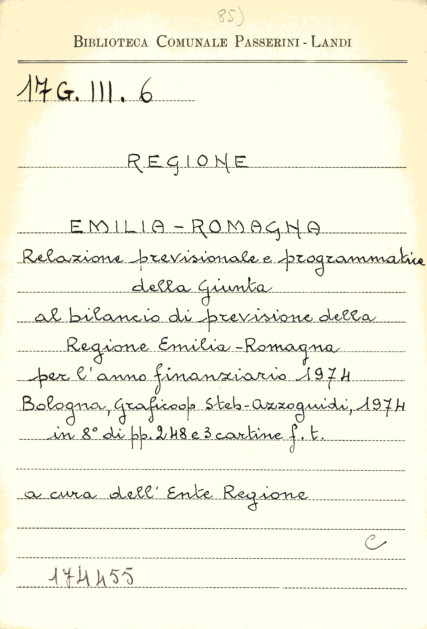 85)
BIBLIOTECA COMUNALE PASSERINI-LANDI
17G. III. 6
REGIONE
EMILIA-ROMAGNA
Relazione previsionale e programmatica
della Giunta
al bilancio di previsione della
Regione Emilia-Romagna
per l'anno finanziario 1974
Bologna, Graficoop Steb-Azzoguidi, 1974
in 8° di pp. 248 e 3 cartine f. t.
a cura dell'Ente Regione
C
174455